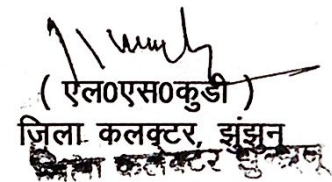 ( एल0एस0कुडी )
जिला कलक्टर, झुंझुनू
जिला कलक्टर झुन्झुनू